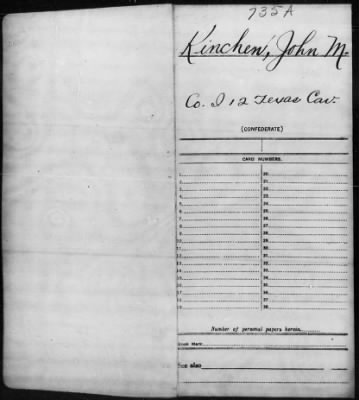 735A
Kinchen, John M.
Co. I 12 Texas Cav.
(CONFEDERATE)
CARD NUMBERS.
1
2
3
4
5
6
7
8
9
10
11
12
13
14
15
16
17
18
19
20
21
22
23
24
25
26
27
28
29
30
31
32
33
34
35
36
37
38
Number of personal papers herein
Book Mark:
See also